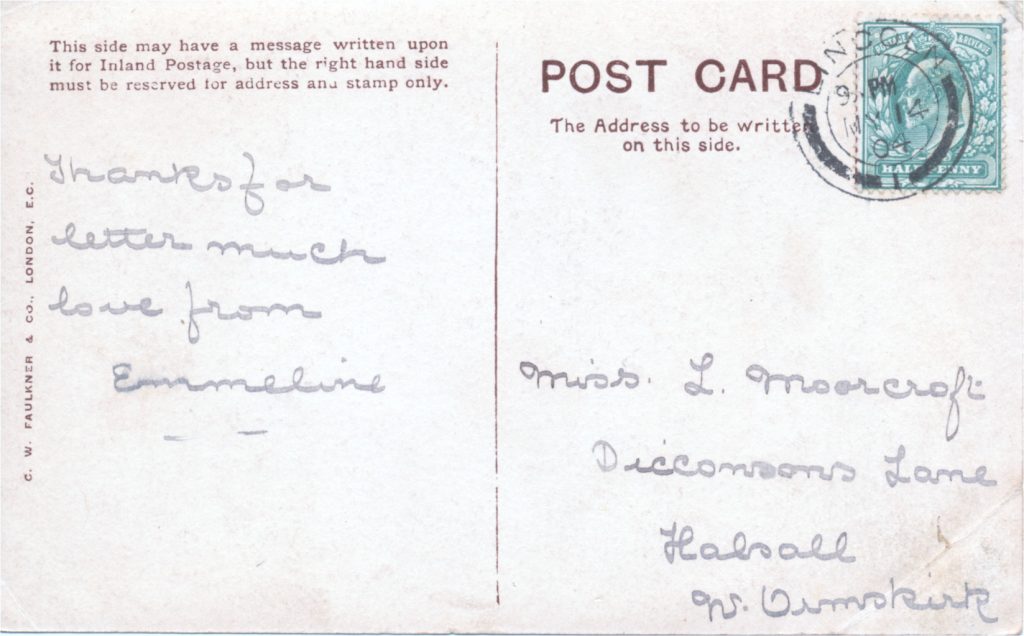 This side may have a message written upon
it for Inland Postage, but the right hand side
must be reserved for address and stamp only.
Thanks for
letter much
love from
Emmeline
C. W. FAULKNER & CO., LONDON, E.C.
POST CARD
The Address to be written
on this side.
POSTAGE & REVENUE
HALFPENNY
PM
MY 14
04
1
Miss. L. Moorcroft
Dicconsons Lane
Halsall
W. Ormskirk